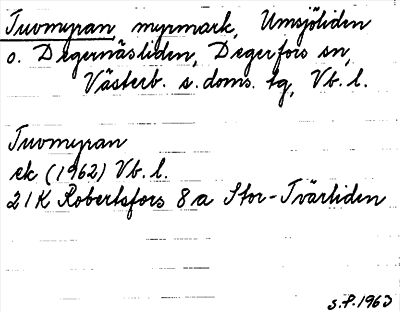 Tuvmyran, myrmark, Umsjöliden
o. Degernäsliden, Degerfors sn,
Västerb. s. doms. tg, Vb. l.
Tuvmyran
ek (1962) Vb. l.
21K Robertsfors 8a Stor-Tvärliden
S.P. 1963